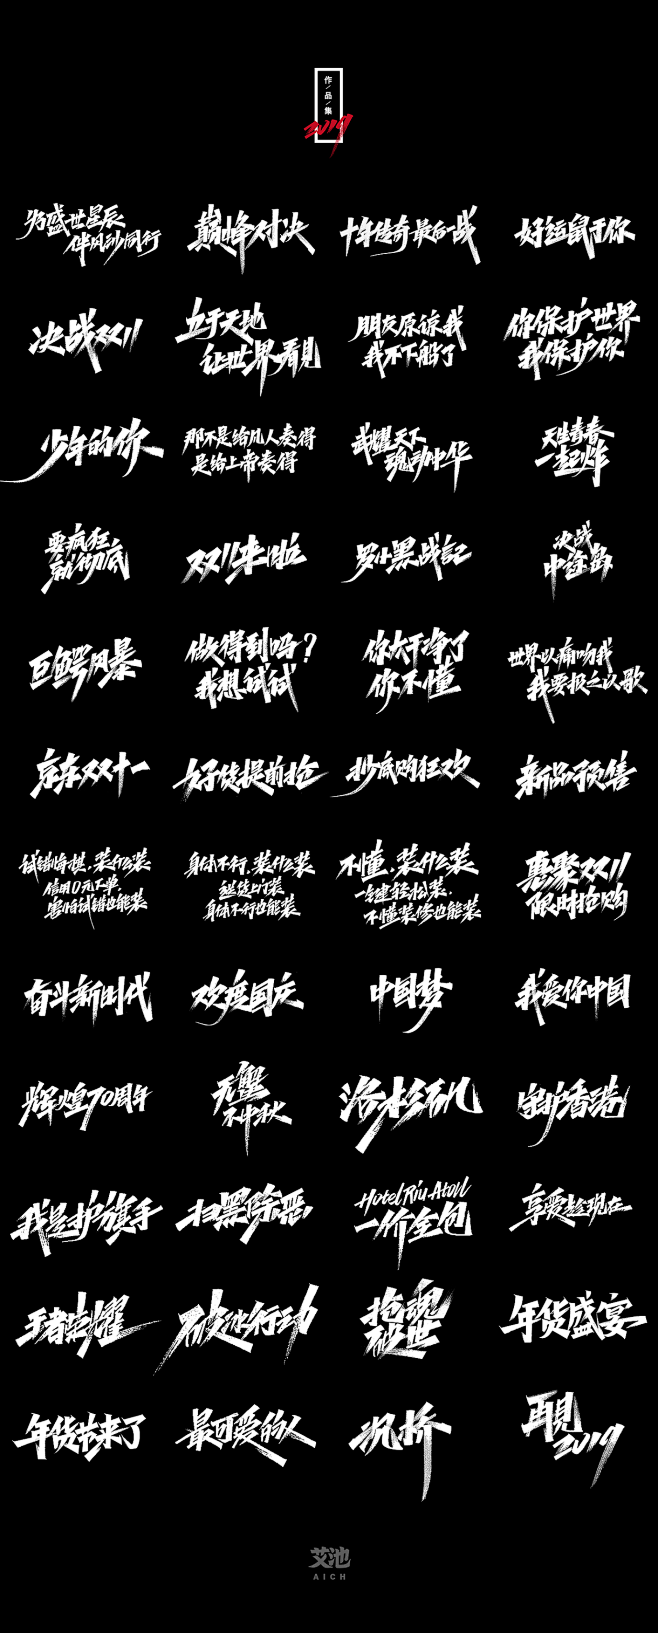 作/品/集
2019
为盛世星辰
伴风沙同行
巅峰对决
十年传奇 最后一战
好运鼠于你
决战双11
立于天地
让世界看見
朋友原谅我
我不下船了
你保护世界
我保护你
少年的你
那不是给凡人奏得
是给上帝奏得
武耀天下
魂动中华
天生青春
一起炸
要疯狂
就彻底
双11来啦
罗小黑战記
决战
中途岛
巨鳄风暴
做得到吗?
我想试试
你太干净了
你不懂
世界以痛吻我
我要报之以歌
京东双十一
好货提前抢
抄底购狂欢
新品预售
试错悔棋,装什么装
信用0元下单,
害怕试错也能装
身体不行,装什么装
送货上门装,
身体不行也能装
不懂,装什么装
一键轻松装,
不懂装修也能装
惠聚双11
限时抢购
奋斗新时代
欢度国庆
中国梦
我爱你中国
辉煌70周年
无蟹
不中秋
洛杉矶
守护香港
我是护旗手
扫黑除恶
Hotel Riu Atoll
一价全包
享受趁现在
王者荣耀
破冰行动
抢魂
破世
年货盛宴
年货节来了
最可爱的人
沉桥
再見
2019
艾池
AICH